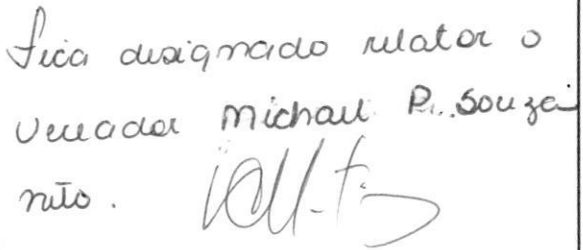 Fica designado relator o
Vereador Michael P. Souza
neto.